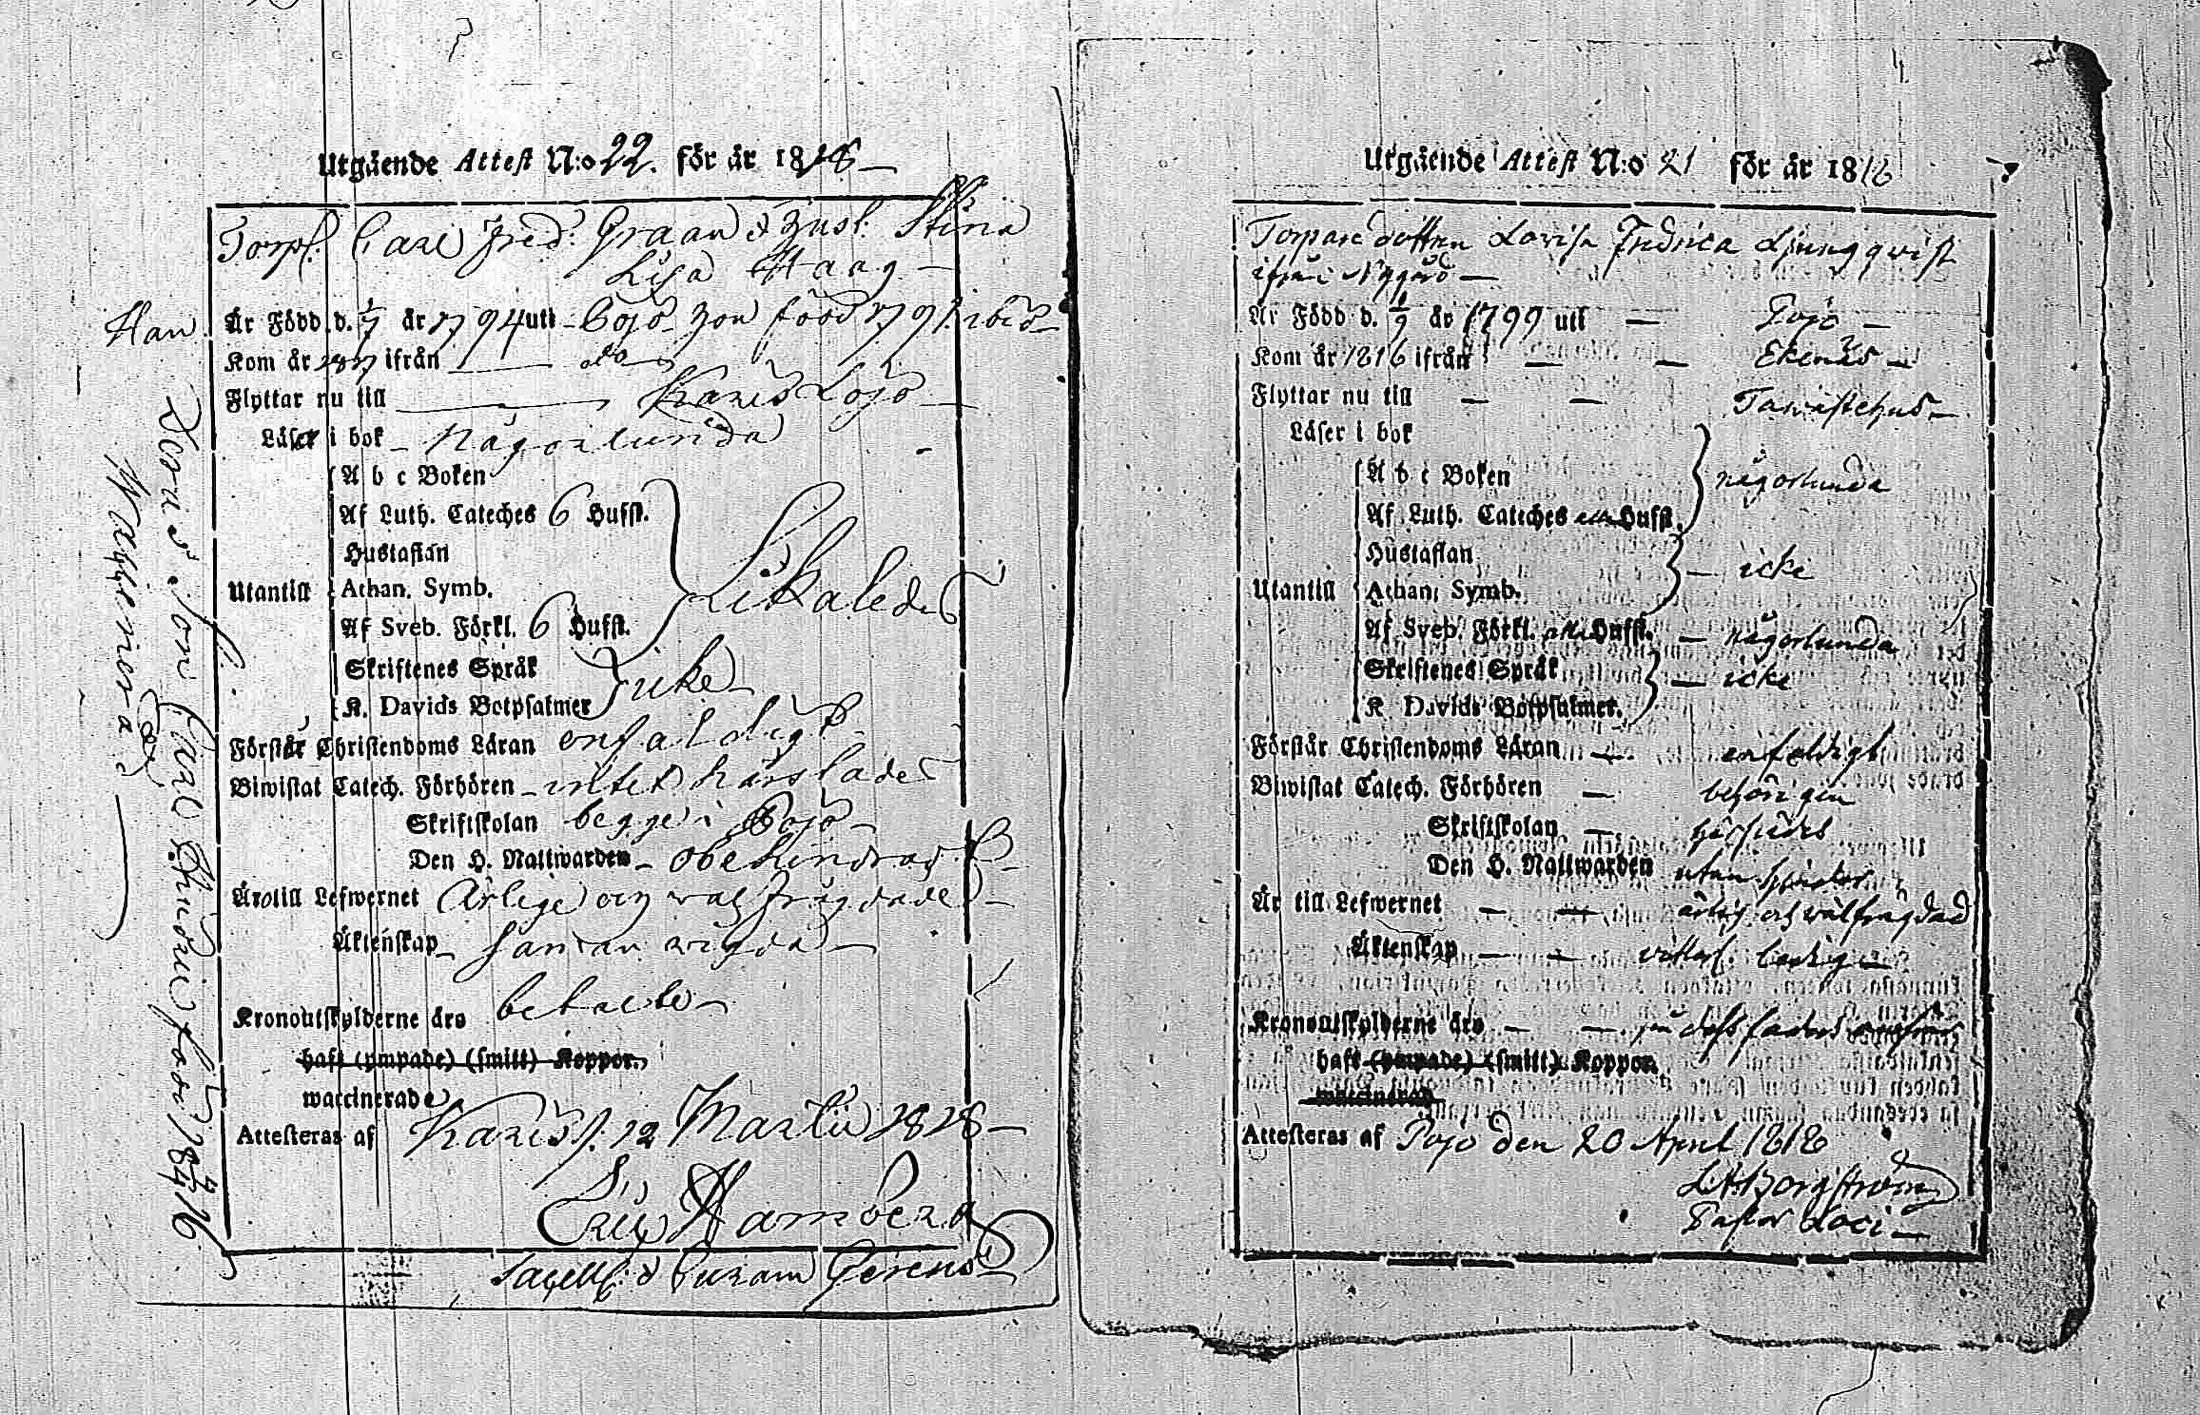 Utgående Attest N:o 22. för år 1818
Torp. Carl Fred. Graan & Hust. Stina
Lisa Haag
Han
Är Född d. år 1794 uti Pojo hon född 179 ibid
Kom år 1817 ifrån do
Flyttar nu till Karis Lojo
Läser i bok någorlunda
A b c Boken
Af Luth. Cateches 6 Hufst.
Hustaflan
Utantill Athan. Symb. Likaledes
Af Sveb. Förkl. 6 Hufst.
Skriftenes Språk icke
K. Davids Botpsalmer
Förstår Christendoms Läran enfaldigt
Biwistat Catech. Förhören intet härstädes
Skriftskolan begge i Pojo
Den H. Nattwarden obehindrad
Äro till Lefwernet Ärlige och wäl frägdade
Äktenskap samman wigda
Kronoutskylderne äro betalde
haft (ympade) (smitt) Koppor.
waccinerade
Attesteras af Karis d. 12 Martii 1818
Eric Hamberg
Sacell. & Curam Gerens
Deras Son Carl född 18 16
Waccinerad
Utgående Attest N:o 21 för år 1818
Torpare dottren Lovisa Fredrica Ljungqvist
ifrån Nygård
Är Född d. år 1799 uti Pojo
Kom år 1816 ifrån Ekenäs
Flyttar nu till Tawastehus
Läser i bok
A b c Boken någorlunda
Af Luth. Cateches alla Hufst.
Hustaflan icke
Utantill Athan. Symb.
Af Sveb. Förkl. alla Hufst. någorlunda
Skriftenes Språk icke
K. Davids Botpsalmer.
Förstår Christendoms Läran enfaldigt
Biwistat Catech. Förhören behörigen
Skriftskolan härstädes
Den H. Nattwarden utan hinder
Är till Lefwernet ärlig och wälfrägdad
Äktenskap ledig
Kronoutskylderne äro dess faders
haft (ympade) (smitt) Koppor
waccinerad
Attesteras af Pojo den 20 April 1818
Borgström
Pastor Loci